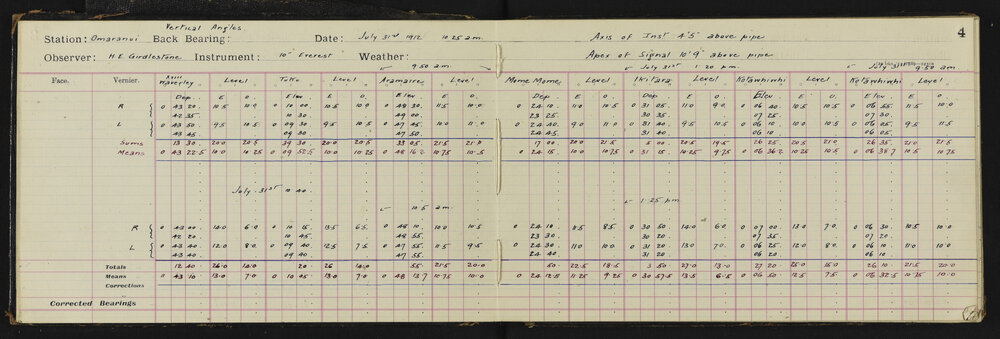 Vertical Angles
4
Station: Omaranui Back Bearing: Date: July 31st 1912 10 25 am. Axis of Inst 4'5" above pipe
Observer: H.E Girdlestone Instrument: 10" Everest Weather: Apex of Signal 10'9" above pipe
9.50 am. July 31st 1.20 pm. July 31 9.50 am
Face. Vernier. Waverley Level Toko Level Aramaire Level Mome Mome Level Ikitara Level Kotawhiwhi Level Kotawhiwhi Level
Dep. E O. Elev E O. Elev E O. Dep E O. Dep E O. Elev. E O. Elev E O.
R 0 43 20 10.5 10.0 0 10 00 10.5 10.0 0 48 30 11.5 10.0 0 24 10 11.0 10.5 0 31 05 11.0 9.0 0 06 40 10.5 10.5 0 06 55 11.5 10.0
42 35 10 30 49 00 23 25 30 35 07 25 07 30
L 0 43 50 9.5 10.5 0 09 30 9.5 10.5 0 47 45 10.0 11.0 0 24 40 9.0 11.0 0 31 40 9.5 10.5 0 06 10 10.0 10.5 0 06 05 9.5 11.5
43 45 09 30 47 50 24 45 31 40 06 10 06 05
Sums 13 30 20.0 20.5 39 30 20.0 20.5 33 05 21.5 21.0 17 00 20.0 21.5 5 00 20.5 19.5 26 25 20.5 21.0 26 35 21.0 21.5
Means 0 43 22.5 10.0 10.25 0 09 52.5 10.0 10.25 0 48 16.2 10.75 10.5 0 24 15 10.0 10.75 0 31 15 10.25 9.75 0 06 36.2 10.25 10.5 0 06 38.7 10.5 10.75
July 31st 10 40.
10.5 am. 1.25 pm
R 0 43 00 14.0 6.0 0 10 15 13.5 6.5 0 48 10 10.0 10.5 0 24 10 11.5 8.5 0 30 50 14.0 6.0 0 07 00 13.0 7.0 0 06 30 10.5 10.0
42 20 10 45 48 55 23 30 30 20 07 35 07 20
L 0 43 40 12.0 8.0 0 09 40 12.5 7.5 0 47 55 11.5 9.5 0 24 30 11.0 10.0 0 31 20 13.0 7.0 0 06 25 12.0 8.0 0 06 10 11.0 10.0
43 40 09 40 47 55 24 40 31 20 06 20 06 10
Totals 12 40 26.0 14.0 20 26 14.0 55 21.5 20.0 50 22.5 18.5 3 50 27.0 13.0 27 20 25.0 15.0 26 10 21.5 20.0
Means 0 43 10 13.0 7.0 0 10 05 13.0 7.0 0 48 13.7 10.75 10.0 0 24 12.5 11.25 9.25 0 30 57.5 13.5 6.5 0 06 50 12.5 7.5 0 06 32.5 10.75 10.0
Corrections
Corrected Bearings